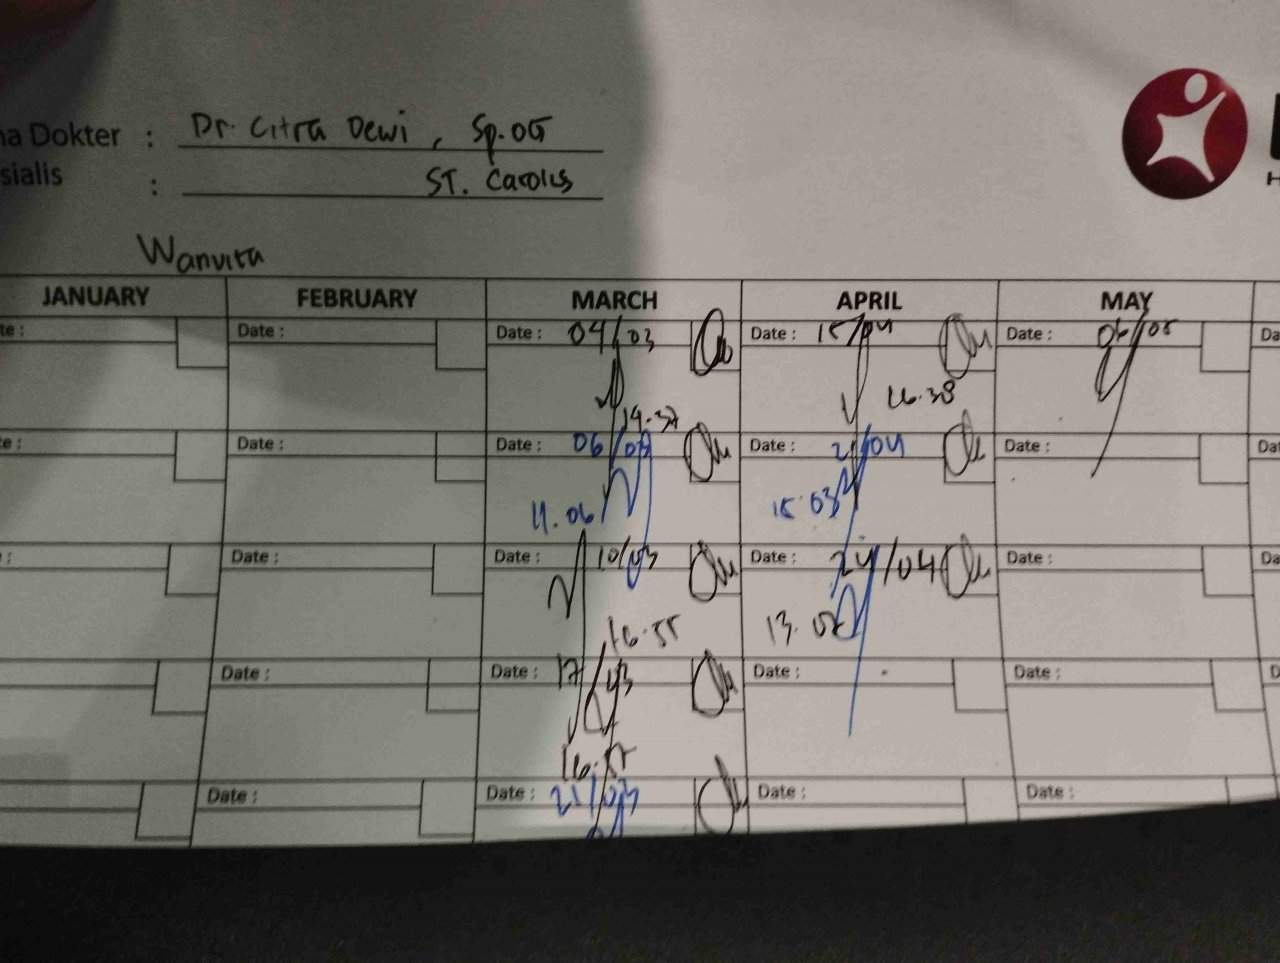 na Dokter : Dr. Citra Dewi, Sp.OG
sialis : ST. Carolus
Wanvita
JANUARY FEBRUARY MARCH APRIL MAY
te : Date : Date : 04/03 Date : 15/04 06/05 Da
19.37 16.38
e : Date : Date : 06/03 Date : 21/04 Dat
11.06 15.03
: Date : Date : 10/03 Date : 24/04 Date : Da
16.55 13.02
Date : Date : 17/03 Date : Date : D
16.57
Date : Date : 21/03 Date : Date :